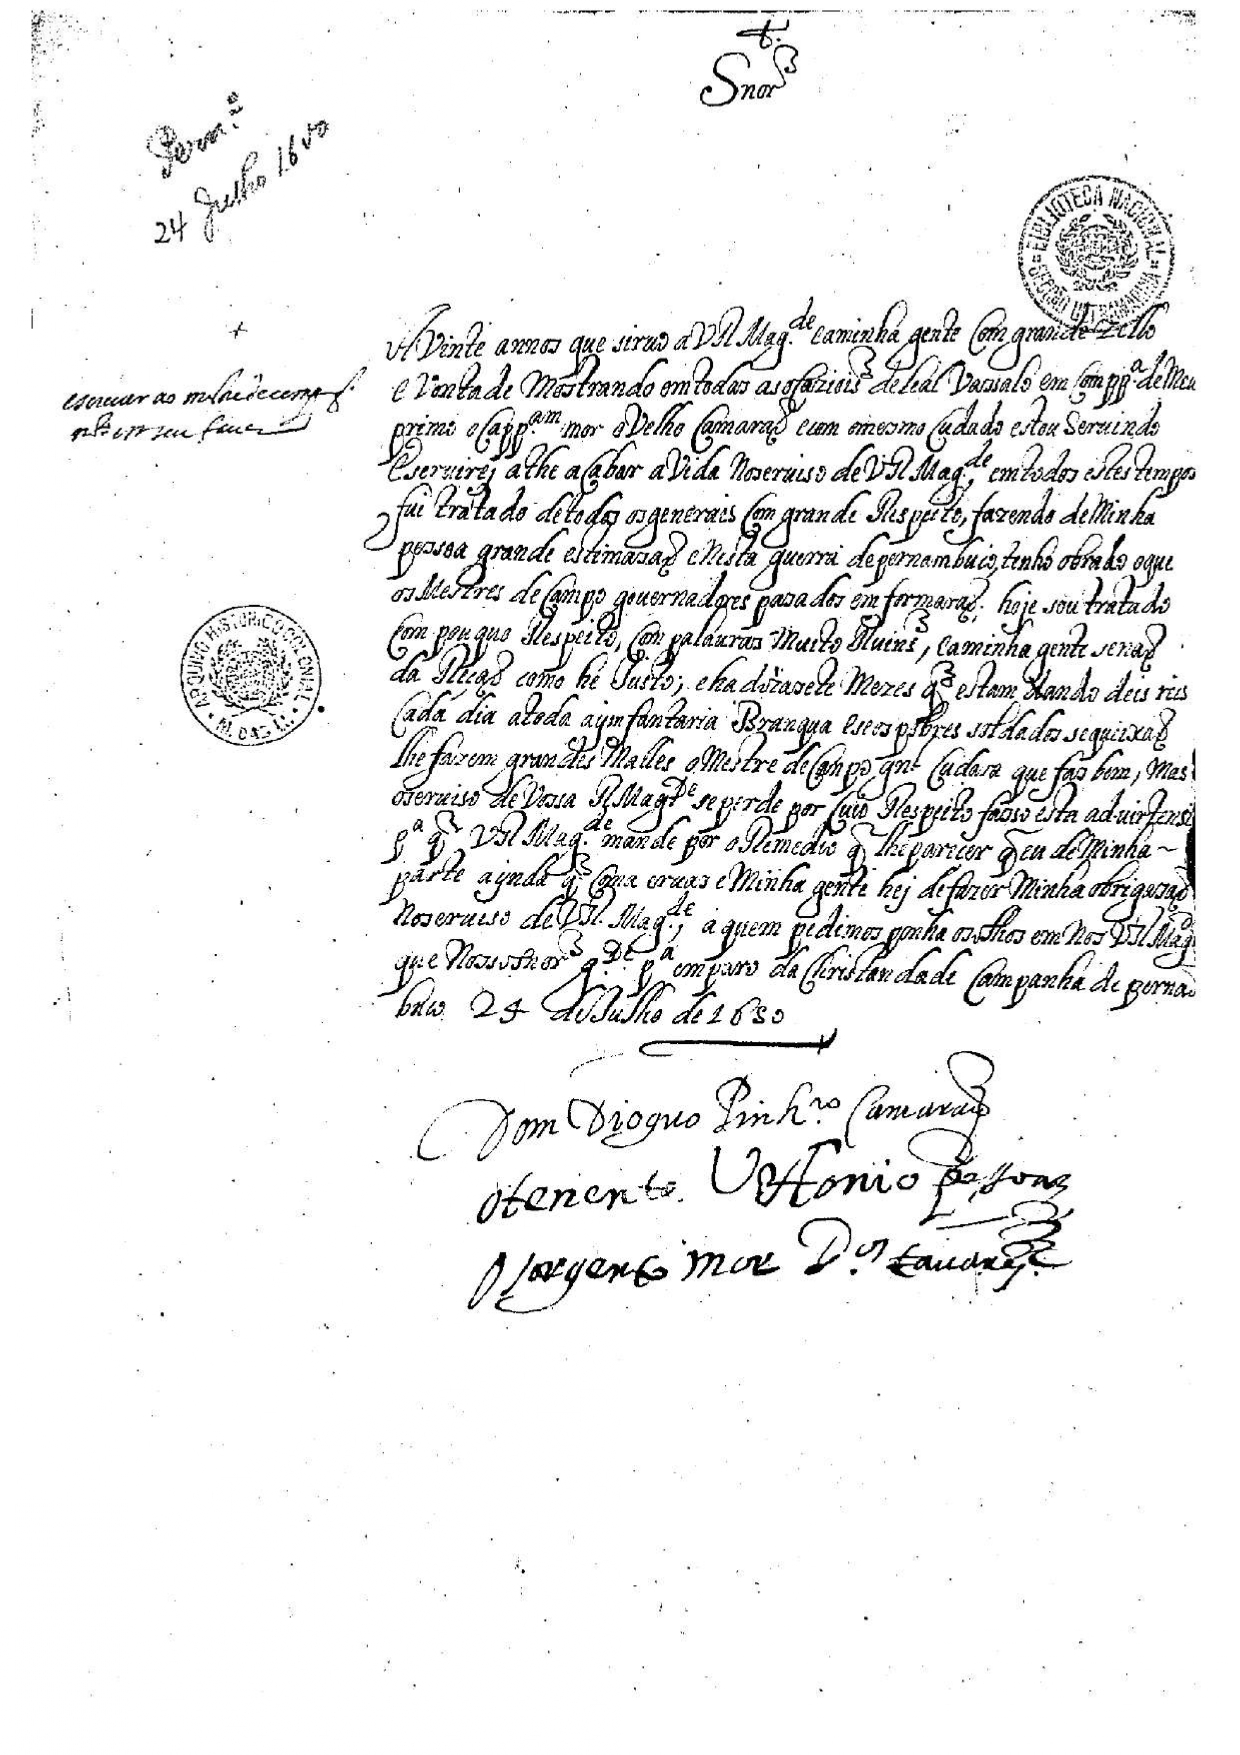 Snor
Pern.co
24 Julho 1650
BIBLIOTECA NACIONAL
SECÇÃO ULTRAMARINA
A Vinte annos que siruo a V R Mag.de eaminha gente Com grande Zello
e Vontade Mostrando emtodas as ocaziois de leal Vassalo em Compp.a de Meu
primo o Capp.am mor o Velho Camaraõ ecom omesmo Cudado estou Seruindo
Eseruirej athe aCabar aVida Noseruiso de V R Mag.de, emtodos estes tempos
fui tratado detodos osgenerais Com grande Respeito, fazendo deMinha
pessoa grande estimasaõ eNesta guerra depernambuco, tenho obrado oque
os Mestres de Campo gouernadores pasados emformaraõ; hoje sou tratado
Com pouquo Respeito, Com palauras Muito Ruins, eaminha gente senaõ
da Reçaõ como he Justo; eha dozasete Mezes q estam dando deis reis
Cada dia atoda aymfantaria Branqua eseos pobres soldados sequeixaõ
lhe fazem grandes Malles oMestre deCampo gnl Cudara que fas bem, Mas
oseruiso de Vossa R Mag.de seperde por Cuio Respeito fasso esta aduirtensi
p.a q V R Mag.de mande por oRemedio q lheparecer q eu deMinha
parte aynda q Coma eruas eMinha gente hej defazer Minha obrigasaõ
Noseruiso de V R. Mag.de, aquem pedimos ponha osolhos em Nos V R Mag
que Nossosnor g.de p.a emparo da Christandade Campanha de perna
buco 24 de Julho de 1650
escreuer ao
em seu fauor
ARQUIVO HISTORICO COLONIAL
Dom Dioguo Pinh.ro Camaraõ
Otenente Antonio pessoa
O sorgento mor D.os tauares